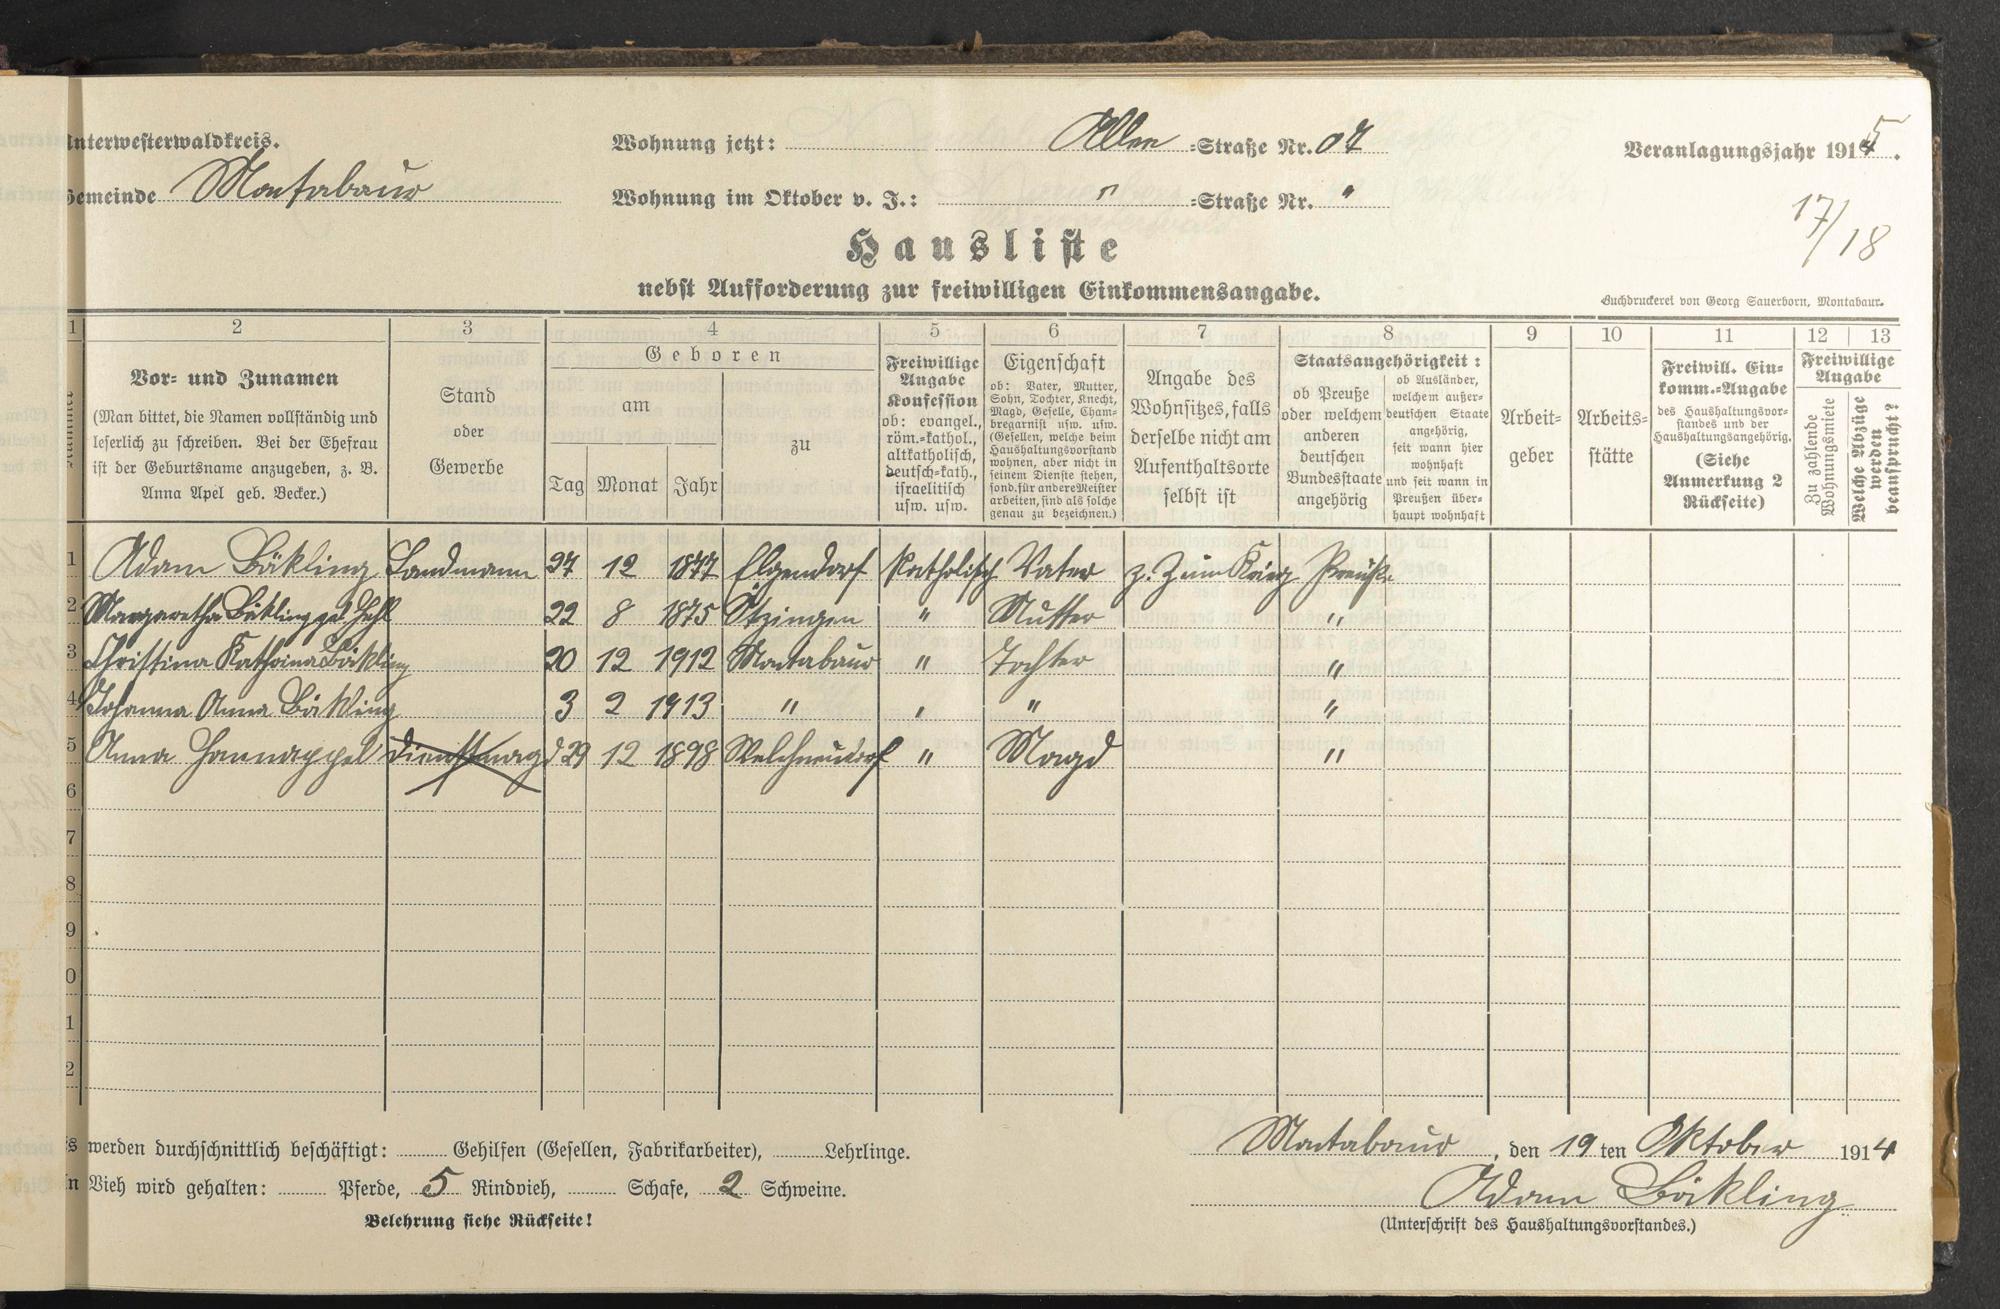 Unterwesterwaldkreis.
Wohnung jetzt: Allee -Straße Nr. 07
Veranlagungsjahr 1915.
Gemeinde Montabaur
Wohnung im Oktober v. J.: " -Straße Nr. "
17/18
Hausliste
nebst Aufforderung zur freiwilligen Einkommensangabe.
Buchdruckerei von Georg Sauerborn, Montabaur.
1 2 3 4 5 6 7 8 9 10 11 12 13
Nummer
Vor- und Zunamen
(Man bittet, die Namen vollständig und
leserlich zu schreiben. Bei der Ehefrau
ist der Geburtsname anzugeben, z. B.
Anna Apel geb. Becker.)
Stand
oder
Gewerbe
Geboren
am
Tag Monat Jahr
zu
Freiwillige
Angabe
Konfession
ob: evangel.,
röm.-kathol.,
altkatholisch,
deutsch-kath.,
israelitisch
usw. usw.
Eigenschaft
ob: Vater, Mutter,
Sohn, Tochter, Knecht,
Magd, Geselle, Cham-
bregarnist usw. usw.
(Gesellen, welche beim
Haushaltungsvorstand
wohnen, aber nicht in
seinem Dienste stehen,
sond. für andere Meister
arbeiten, sind als solche
genau zu bezeichnen.)
Angabe des
Wohnsitzes, falls
derselbe nicht am
Aufenthaltsorte
selbst ist
Staatsangehörigkeit:
ob Preuße
oder welchem
anderen
deutschen
Bundesstaate
angehörig
ob Ausländer,
welchem außer-
deutschen Staate
angehörig,
seit wann hier
wohnhaft
und seit wann in
Preußen über-
haupt wohnhaft
Arbeit-
geber
Arbeits-
stätte
Freiwill. Ein-
komm.-Angabe
des Haushaltungsvor-
standes und der
Haushaltungsangehörig.
(Siehe
Anmerkung 2
Rückseite)
Freiwillige
Angabe
Zu zahlende
Wohnungsmiete
Welche Abzüge
werden
beansprucht?
1 Adam Bäkling Landmann 27 12 1877 Elgendorf Katholisch Vater z. Z im Krieg Preuße
2 Margaretha Bäkling geb Hehl 22 8 1875 Ötzingen " Mutter "
3 Christina Katharina Bäkling 20 12 1912 Montabaur " Tochter "
4 Johanna Anna Bäkling 3 2 1913 " " " "
5 Anna Hannappel Dienstmagd 29 12 1898 Welschneudorf " Magd "
6
7
8
9
0
1
2
s werden durchschnittlich beschäftigt: Gehilfen (Gesellen, Fabrikarbeiter), Lehrlinge.
Montabaur, den 19ten Oktober 1914
n Vieh wird gehalten: Pferde, 5 Rindvieh, Schafe, 2 Schweine.
Adam Bäkling
Belehrung siehe Rückseite!
(Unterschrift des Haushaltungsvorstandes.)